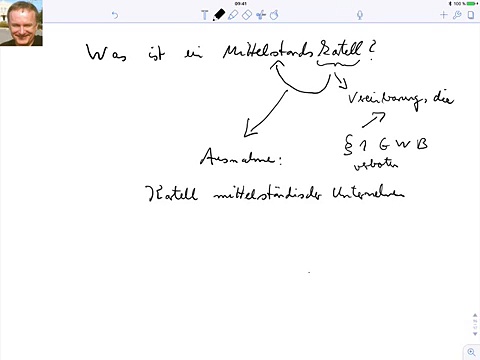 09:41
100 %
Was ist ein MittelstandsKatell?
Vereinbarung, die
§ 1 GWB
verboten
Ausnahme:
Kartell mittelständischer Unternehmen